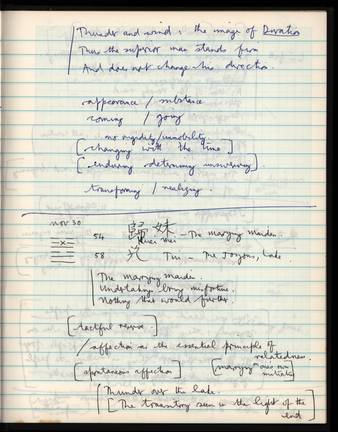 Thunder and wind: the image of Duration
Thus the superior man stands firm
And does not change his direction.
appearance / substance
coming / going
no rigidity/immobility
[changing with the time]
[enduring determining unswerving]
transforming / realizing.
nov 30
54 歸妹 Kuei mei - The marrying maiden
58 兌 Tui - The Joyous, Lake.
The marrying maiden.
Undertakings bring misfortune.
Nothing that would further.
[tactful reserve.]
/ affection as the essential principle of
relatedness.
[spontaneous affection] ["marrying" own
initiative]
Thunder over the lake.
[The transitory seen in the light of the
end]